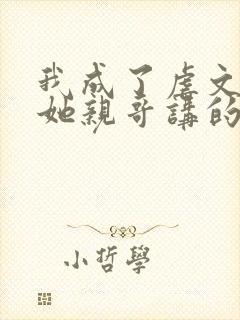 我成了虐文
她親哥講的
小哲學